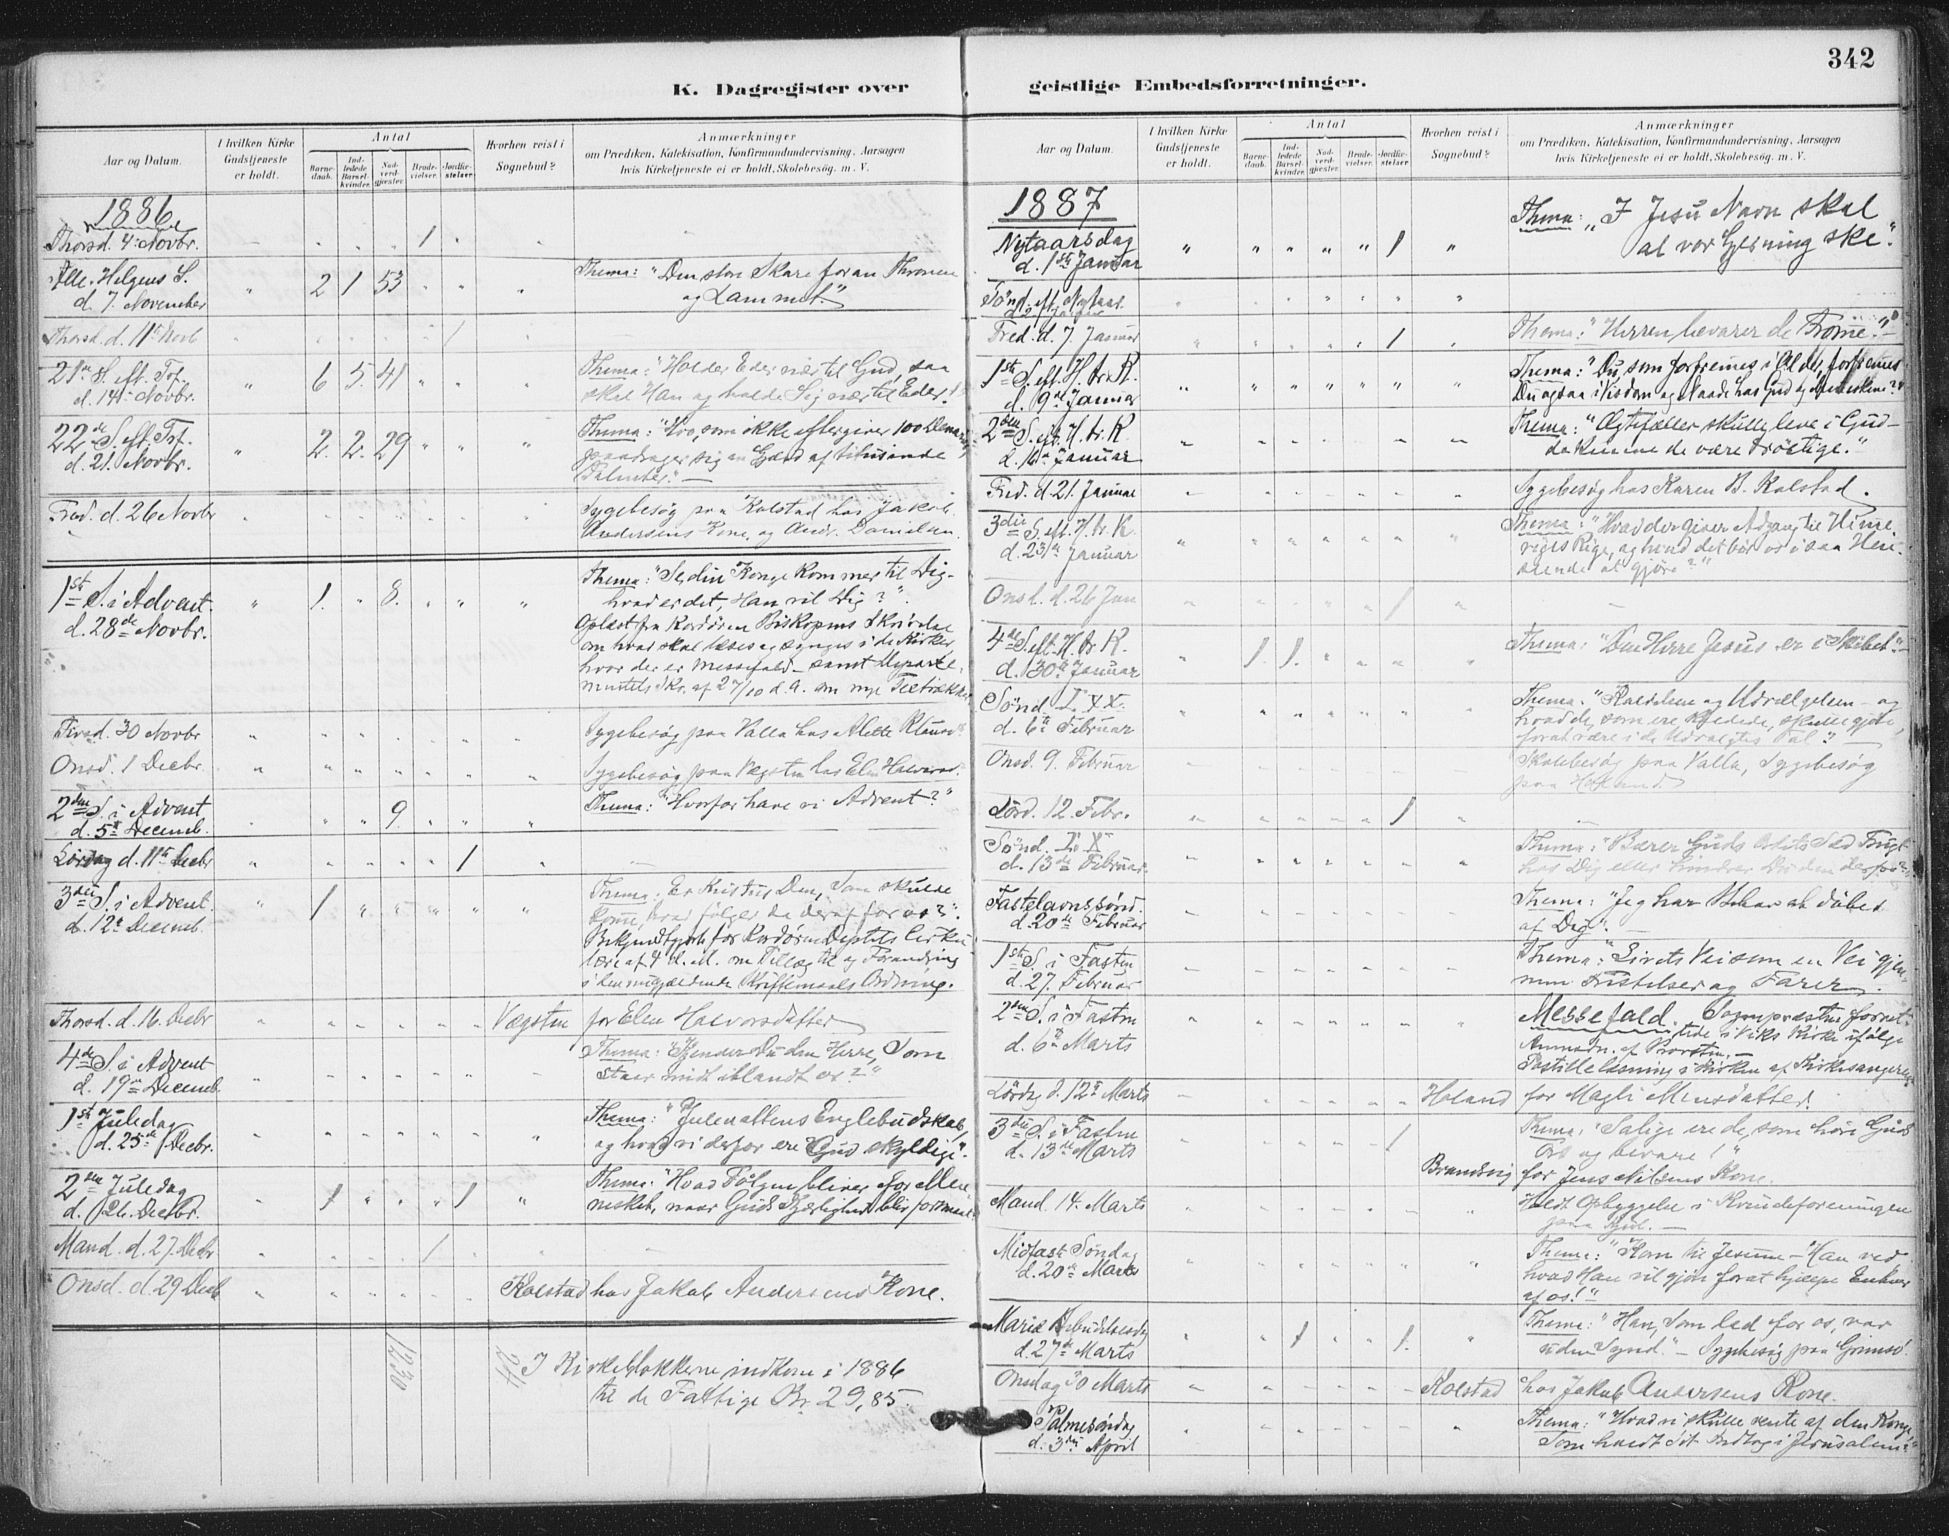 342
K. Dagregister over
geistlige Embedsforretninger.
Aar og Datum.
I hvilken Kirke Gudstjeneste er holdt.
Antal
Barne-daab.
Ind-ledede Barsel-kvinder.
Nad-verd-gjester.
Brude-vielser.
Jordfæ-stelser.
Hvorhen reist i Sognebud?
Anmærkninger
om Prædiken, Katekisation, Konfirmandundervisning, Aarsagen
hvis Kirketjeneste ei er holdt, Skolebesøg. m. V.
1886
Thorsd. 4. Novbr. 1
Alle Helgens S. 2 1 53 Thema: "Den store Skare foran Thronen
d. 7. November og Lammet."
Thorsd. d. 11te Novb 1
21de S. eft. Tref. 6 5. 41 Thema: "Holder Eder nær til Gud, saa
d. 14de Novbr. skal Han og holde Sig nær til Eder!"
22de S. eft. Tref. 2. 2. 29 Thema: "Hvo, som ikke eftergiver 100 Denarer
d. 21. Novbr. paadrager sig en Gjæld af titusende
Talenter."
Fred. d. 26 Novbr Sygebesøg paa Kolstad hos Jakob
Andersens Kone, og Andr. Danielsen.
1ste S. i Advent. 1. 8. Thema: "Se, din Konge kommer til Dig-
d. 28de Novbr. hvad er det, Han vil Dig?".
Oplæst fra Kordøren Biskopens Skrivelse
om hvad skal læses og synges i de Kirker,
hvor der er Messefald – samt Departe-
mentets Skr. af 27/10 d. A. om nye
Tirsd. 30 Novbr Sygebesøg paa Valla hos Alette
Onsd. 1 Decbr. Sygebesøg paa Vægsten hos Elen
2den S. i Advent 9 Thema: "Hvorfor have vi Advent?"
d. 5te Decemb.
Lørdag d. 11te Decbr 1
3die S. i Advent. 1 Thema: Er Kristus Den, Som skulde
d. 12te Decemb. komme, hvad følger da deraf for os?".
Bekjendtgjort for Kordøren Deptets Cirku
lære af 4 d. M. om Tillæg til og Forandring
i den nugjældende Ordning.
Thorsd. d. 16. Decbr Vægsten for Elen Halvorsdatter
4de S. i Advent Thema: "Kjender Du den Herre, Som
d. 19de Decemb. staar midt iblandt os?"
1ste Juledag Thema: "Julenattens Englebudskab,
d. 25de Decbr. og hvad vi derfor ere Gud skyldige".
2den Juledag 1 1 Thema: "Hvad Følgen bliver for Men
d. 26. Decbr. nesket, naar Guds Kjærlighed blir
Mand. d. 27. Decbr 1
Onsd. d. 29 Decb Kolstad hos Jakob Andersens Kone.
I Kirkeblokkerne indkom i 1886
til de Fattige Kr 29,85
Aar og Datum.
I hvilken Kirke Gudstjeneste er holdt.
Antal
Barne-daab.
Ind-ledede Barsel-kvinder.
Nad-verd-gjester.
Brude-vielser.
Jordfæ-stelser.
Hvorhen reist i Sognebud?
Anmærkninger
om Prædiken, Katekisation, Konfirmandundervisning, Aarsagen
hvis Kirketjeneste ei er holdt, Skolebesøg. m. V.
1887
Nytaarsdag 1 Thema: "I Jesu Navn skal
d. 1ste Januar al vor Gjerning ske".
Sønd. eft. Nytaar
Fred. d. 7. Januar 1 Thema: "Herren bevarer de Fromme."
1ste S. eft. H. tr. K. Thema: "Du, som forfremes i Alder, forfremes
d. 9de Januar Du ogsaa i Visdom og Naade hos Gud og Menneskene?"
2den S. eft. H. tr. K. Thema: "Ægtefæller skulle leve i Gud-
d. 16de Januar da kunne de være trøstige."
Fred. d. 21. Januar Sygebesøg hos Karen B. Kolstad.
3die S. eft. H. tr. K. Thema: "Hvad der giver Adgang til Himme
d. 23de Januar riges Rige, og hvad det bør os i saa Hen-
seende at gjøre?"
Onsd. d. 26 Jan 1
4de S. eft. H. tr. K. 1. 1. Thema: "Den Herre Jesus er i Skibet."
d. 30te Januar
Sønd. LXX. Thema: "Kaldelsen og Udvælgelsen – og
d. 6te Februar hvad de, som ere Kaldede, skulle gjøre,
forat være i de Udvalgtes Tal?
Onsd. 9. Februar Skolebesøg paa Valla, Sygebesøg
paa
Lørd. 12. Febr. 1
Sønd. LX Thema: "Bærer Guds Ords Sæd Frugt
d. 13de Februar. hos Dig eller hindrer Du den derfor?"
Fastelavnssønd. Thema: "Jeg har Behov at døbes
d. 20de Februar af Dig".
1ste S. i Fasten Thema: "Livets Vei som en Vei gjen-
d. 27. Februar nem Fristelser og Farer.
2den S. i Fasten Messefald. Sognepræsten forret-
d. 6te Marts tede i Viks Kirke ifølge
Anmodn. af Provsten. –
Postillelæsning i Kirken af Kirkesangeren
Lørdag d. 12te Marts Holand for Magli Monsdatter.
3die S. i Fasten 1 Thema: "Salige ere de, som høre Guds
d. 13de Marts Ord og bevare!"
Brandsvig for Jens Nilsens Kone.
Mand. 14. Marts Holdt Opbyggelse i Kvindeforeningen
paa
Midfaste Søndag Thema: "Kom til Jesum – Han ved
d. 20de Marts hvad Han vil gjøre forat hjælpe Enhver
af os!"
Mariæ Bebudelsesdag 1 1. Thema: "Han, Som led for os, var
d. 27de Marts uden Synd." – Sygebesøg paa
Onsdag 30 Marts Kolstad hos Jakob Andersens Kone.
Palmesøndag Thema: "Hvad vi skulle vente af den Konge,
d. 3die April Som holdt Sit Indtog i Jerusalem?"